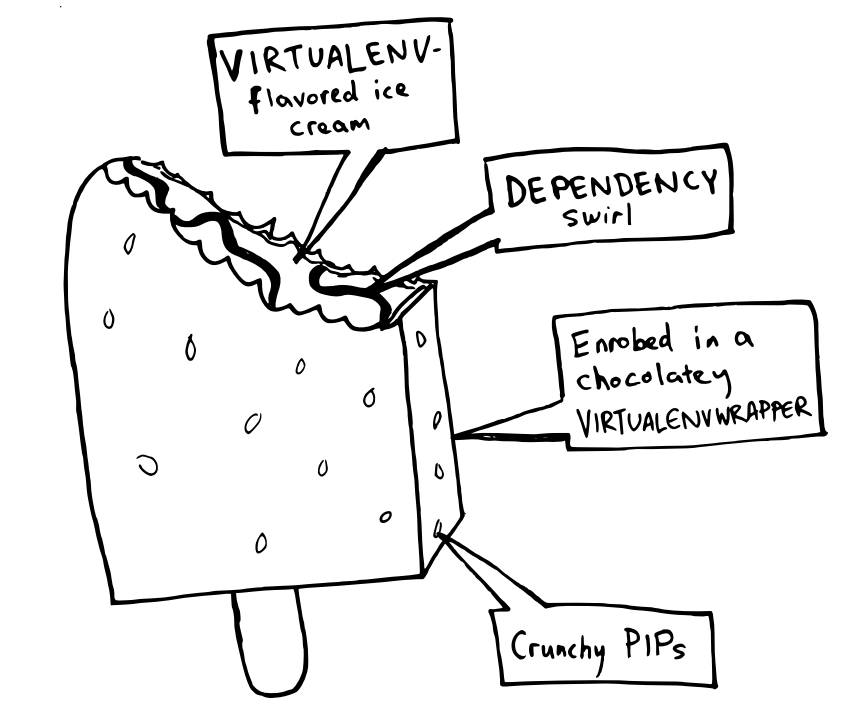 VIRTUALENV-
flavored ice
cream
DEPENDENCY
swirl
Enrobed in a
chocolatey
VIRTUALENVWRAPPER
Crunchy PIPs